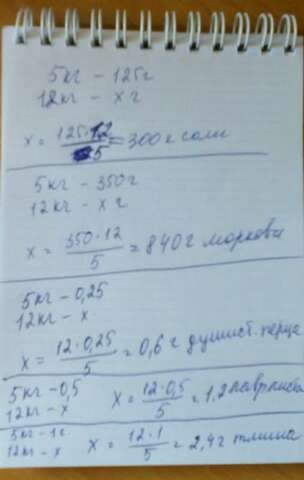 5кг – 125г
12кг – х г
х = 125·12 / 5 = 300 г соли
5кг – 350г
12кг – х г
х = 350·12 / 5 = 840 г моркови
5кг – 0,25
12кг – х
х = 12·0,25 / 5 = 0,6 г душист. перца
5кг – 0,5
12кг – х
х = 12·0,5 / 5 = 1,2 лавр листа
5кг – 1г
12кг – х
х = 12·1 / 5 = 2,4г тмина